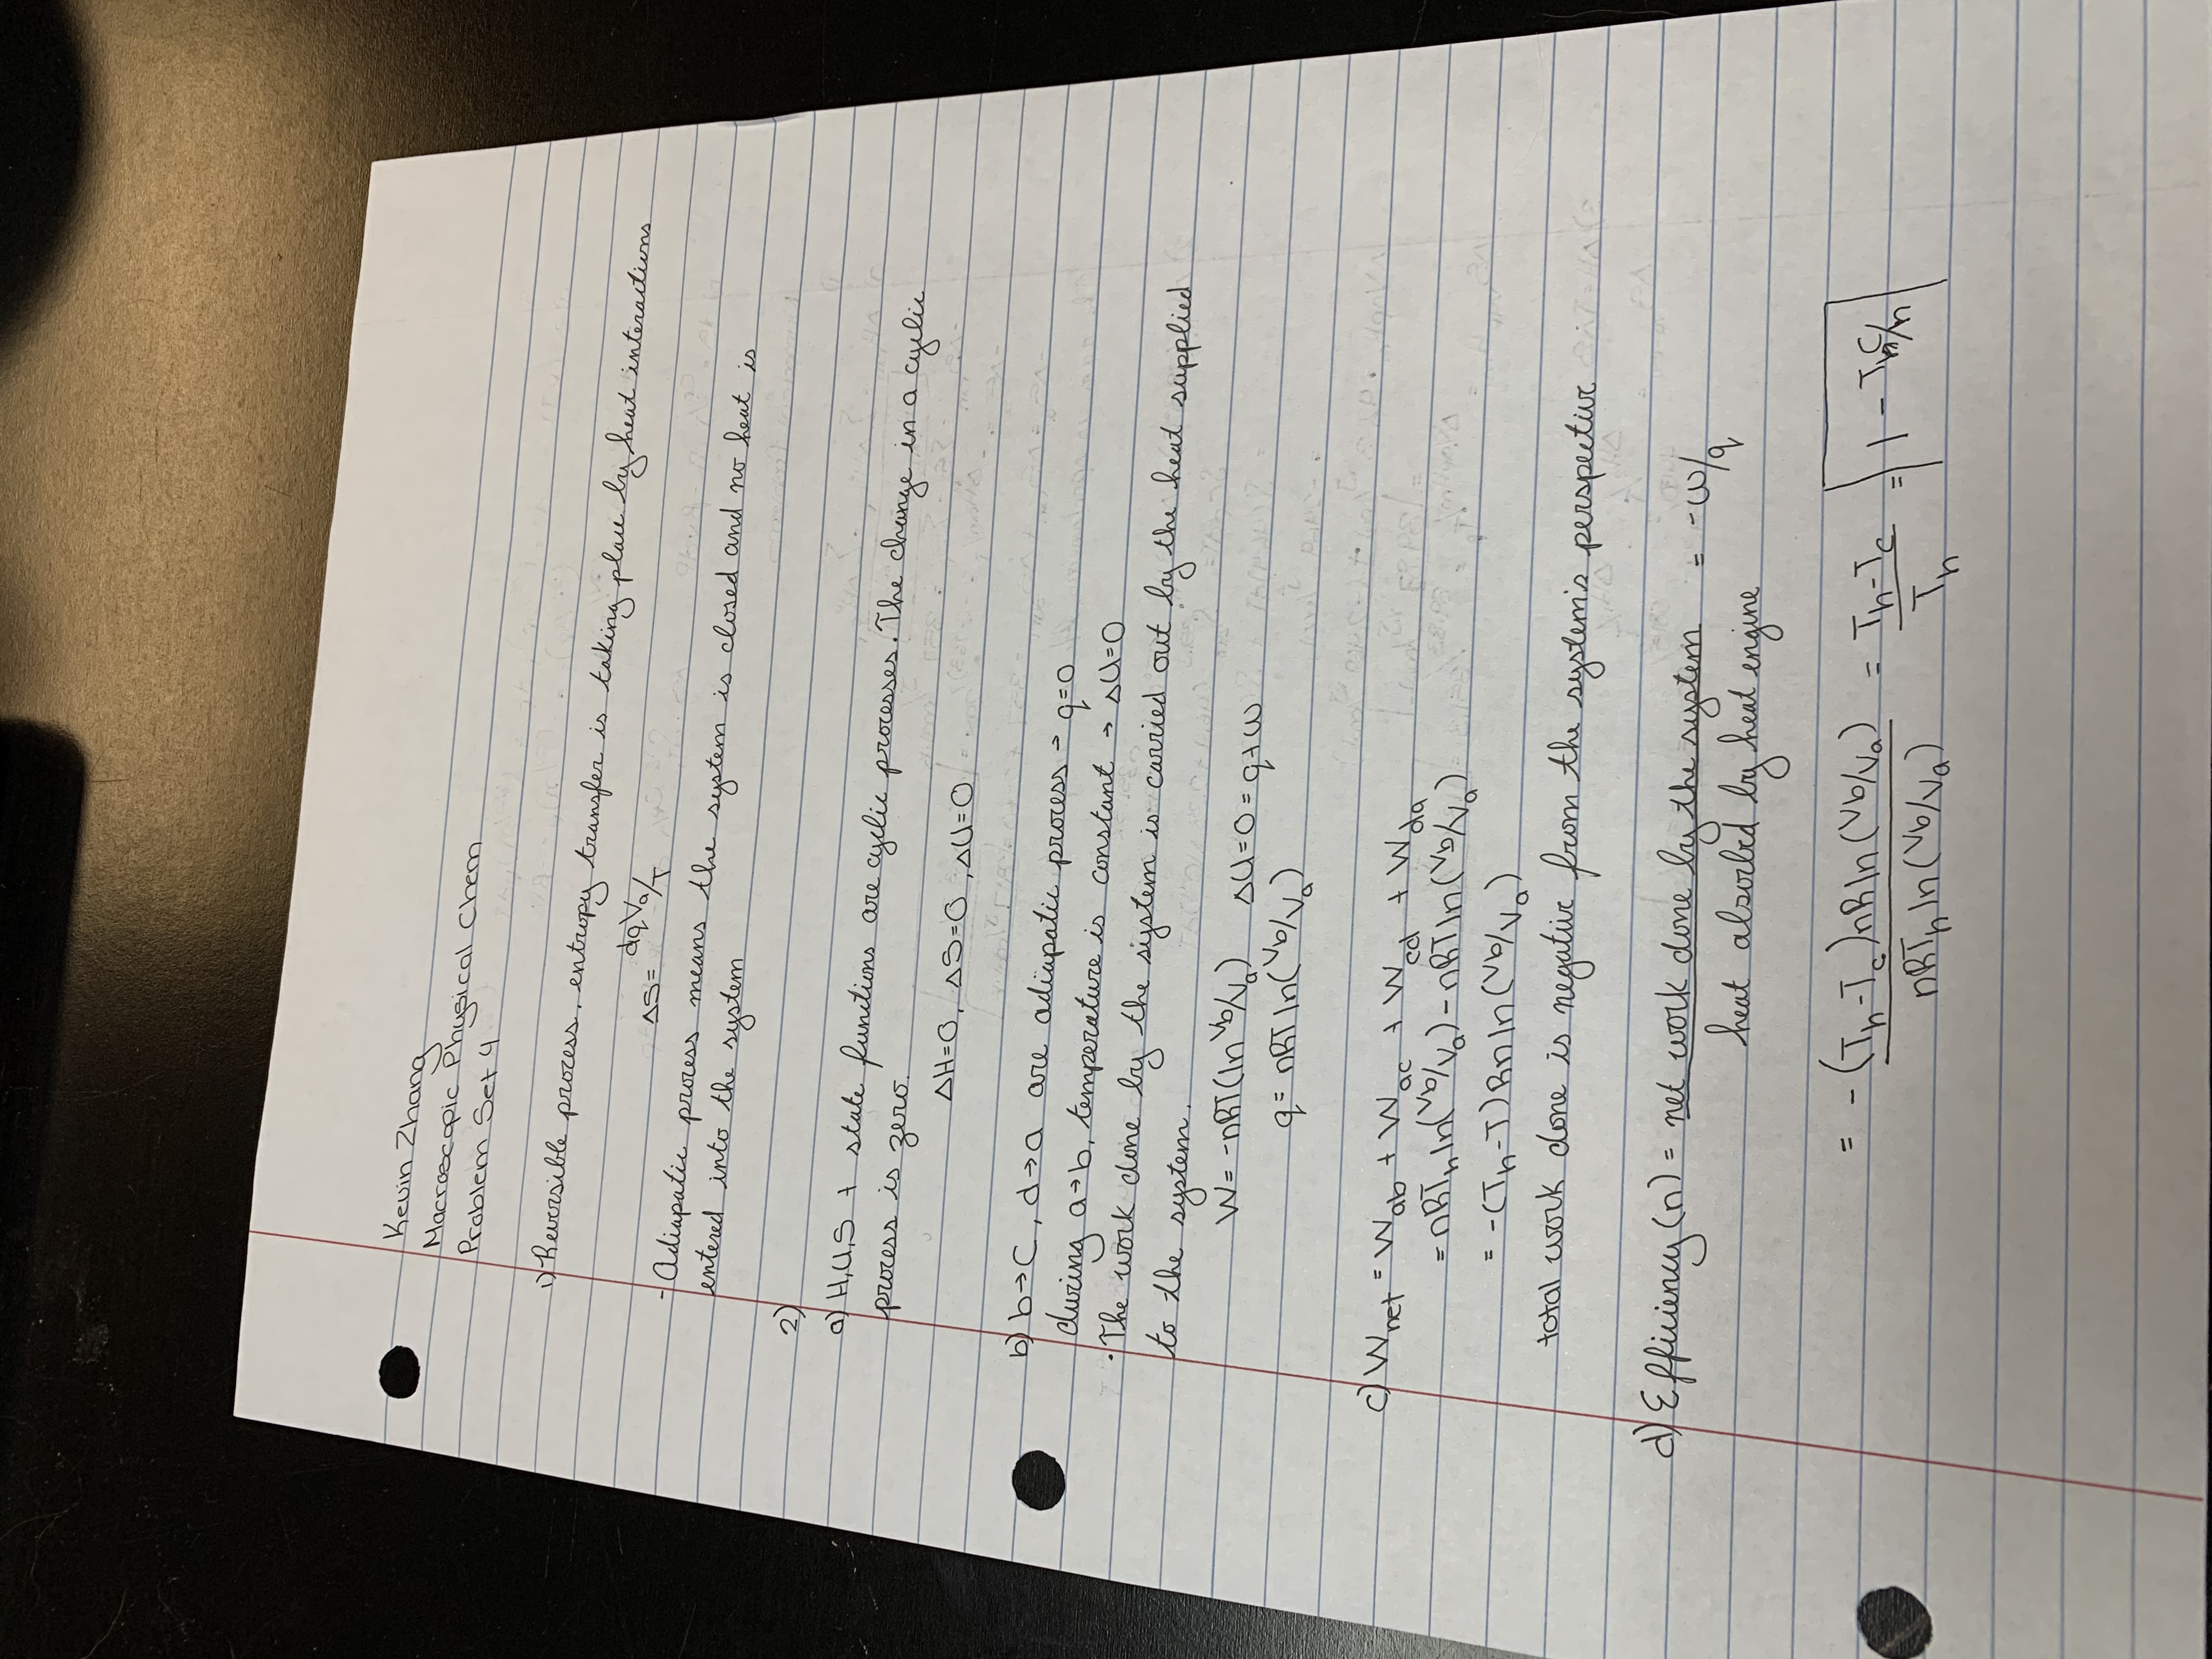 Kevin Zhang
Macroscopic Physical Chem
Problem Set 4
1) Reversible process, entropy transfer is taking place by heat interactions
ΔS= dqVa/T
- Adiapatic process means the system is closed and no heat is
entered into the system
2)
a) H,U,S + state functions are cyclic processes. The change in a cyclic
process is zero.
ΔH=0, ΔS=0, ΔU=0
b) b→C, d→a are adiapatic process → q=0
during a→b, temperature is constant → ΔU=0
• The work done by the system is carried out by the heat supplied
to the system.
W= -nRT(ln Vb/Va) ΔU=0=q+w
q= nRT ln(Vb/Va)
c) Wnet = Wab + Wac + Wcd + Wda
= nRTh ln(Vb/Va) - nRT ln(Vb/Va)
= -(Th-T)Rn ln(Vb/Va)
total work done is negative from the system's perspective
d) Efficiency (n) = net work done by the system = -w/q
heat absorbed by heat engine
= -(Th-Tc)nR ln(Vb/Va) = Th-Tc = 1 -
nRTh ln(Vb/Va) Th